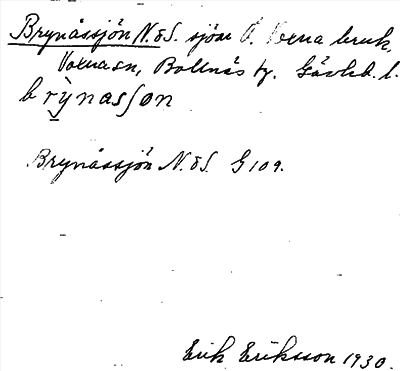 Brynåssjön N. o S. sjöar Ö. Voxna bruk,
Voxna sn, Bollnäs tg. Gävleb. l.
brỳnasʃon
Brynåssjön N. o S. G 109.
Erik Eriksson 1930.